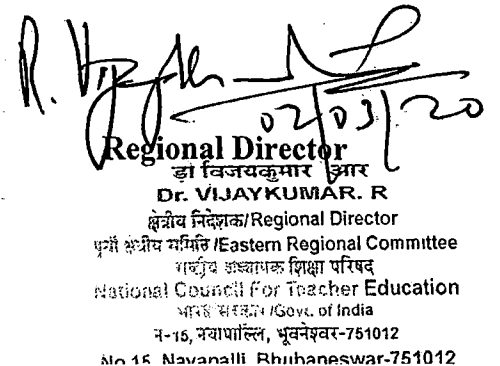 R. Vijaykumar
02/03/20
Regional Director
डॉ विजयकुमार आर
Dr. VIJAYKUMAR. R
क्षेत्रीय निदेशक/Regional Director
पूर्वी क्षेत्रीय समिति /Eastern Regional Committee
राष्ट्रीय अध्यापक शिक्षा परिषद
National Council For Teacher Education
भारत सरकार /Govt. of India
न-15, नयापाल्लि, भूवनेश्वर-751012
No 15, Nayapalli, Bhubaneswar-751012